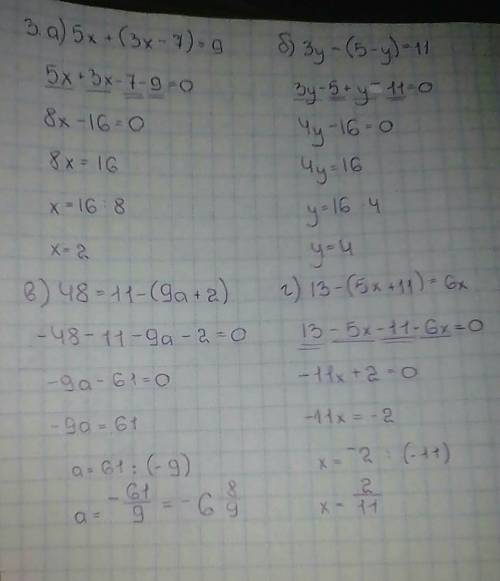 3. а) 5x + (3x - 7) = 9
5x + 3x - 7 - 9 = 0
8x - 16 = 0
8x = 16
x = 16 : 8
x = 2
б) 3y - (5 - y) = 11
3y - 5 + y - 11 = 0
4y - 16 = 0
4y = 16
y = 16 4
y = 4
в) 48 = 11 - (9a + 2)
-48 - 11 - 9a - 2 = 0
-9a - 61 = 0
-9a = 61
a = 61 : (-9)
a = -61/9 = -6 8/9
г) 13 - (5x + 11) = 6x
13 - 5x - 11 - 6x = 0
-11x + 2 = 0
-11x = -2
x = -2 : (-11)
x - 2/11